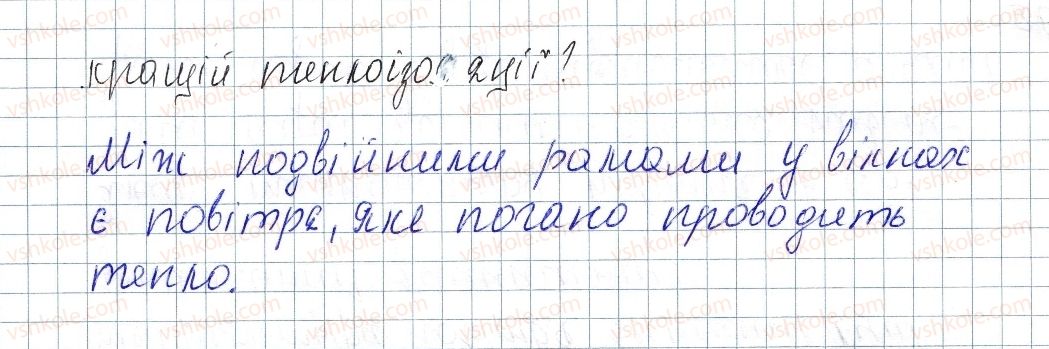 кращій теплоізоляції?
Між подвійними рамами у вікнах
є повітря, яке погано проводить
тепло.